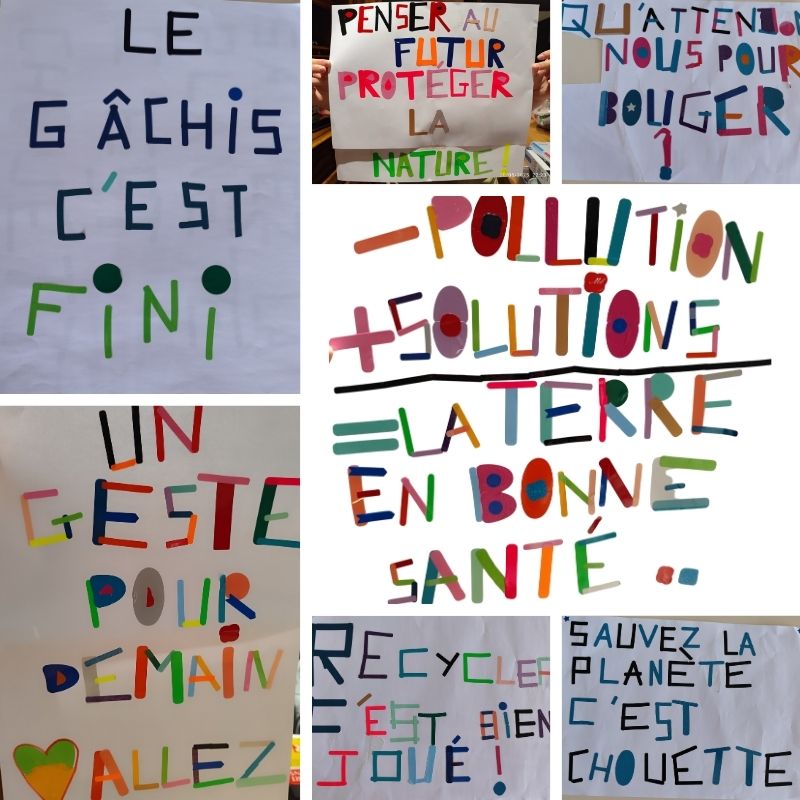 LE
GÂCHIS
C'EST
FINI
PENSER AU
FUTUR
PROTÉGER
LA
NATURE !
QU'ATTENDONS
NOUS POUR
BOUGER
?
- POLLUTION
+ SOLUTIONS
= LA TERRE
EN BONNE
SANTÉ
UN
GESTE
POUR
DEMAIN
ALLEZ
RECYCLER
C'EST BIEN
JOUÉ !
SAUVEZ LA
PLANÈTE
C'EST
CHOUETTE